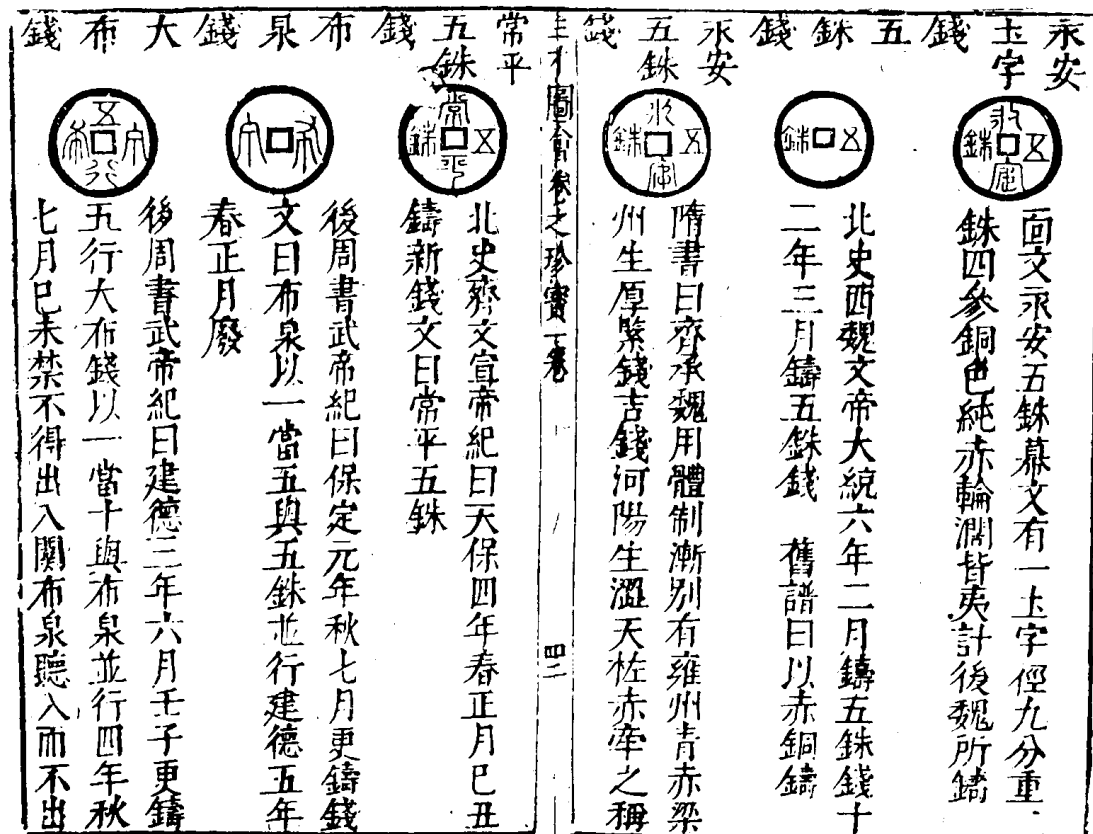 永安土字錢
五銖
永安
面文永安五銖幕文有一土字徑九分重
銖四參銅色純赤輪濶皆夷計後魏所鑄
五銖錢
五銖
北史西魏文帝大統六年二月鑄五銖錢十
二年三月鑄五銖錢 舊譜曰以赤銅鑄
永安五銖錢
永安
五銖
隋書曰齊承魏用體制漸別有雍州青赤梁
州生厚緊錢吉錢河陽生澀天柱赤牽之稱
圖會卷之珍寶一卷
四二
常平五銖錢
常平
五銖
北史齊文宣帝紀曰天保四年春正月巳丑
鑄新錢文曰常平五銖
布泉錢
後周書武帝紀曰保定元年秋七月更鑄錢
文曰布泉以一當五與五銖並行建德五年
春正月廢
大布錢
五行大布
後周書武帝紀曰建德三年六月壬子更鑄
五行大布錢以一當十與布泉並行四年秋
七月巳未禁不得出入關布泉聽入而不出